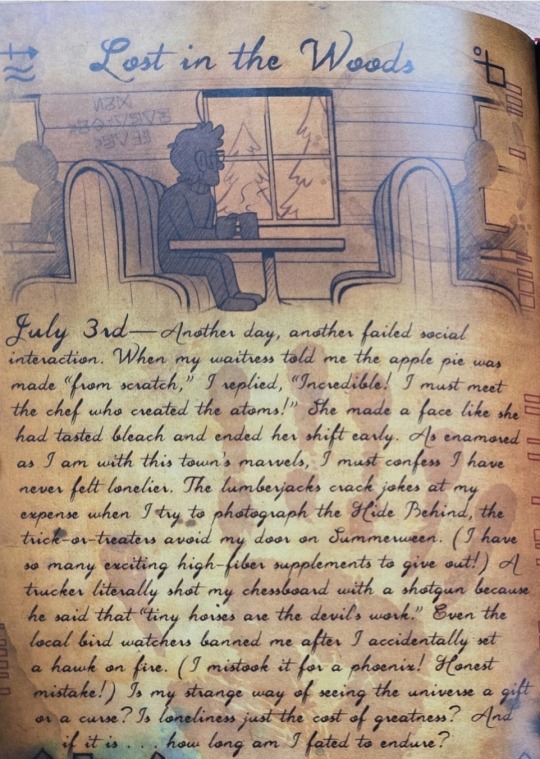 Lost in the Woods
July 3rd—Another day, another failed social
interaction. When my waitress told me the apple pie was
made "from scratch," I replied, "Incredible! I must meet
the chef who created the atoms!" She made a face like she
had tasted bleach and ended her shift early. As enamored
as I am with this town's marvels, I must confess I have
never felt lonelier. The lumberjacks crack jokes at my
expense when I try to photograph the Hide Behind, the
trick-or-treaters avoid my door on Summerween. (I have
so many exciting high-fiber supplements to give out!) A
trucker literally shot my chessboard with a shotgun because
he said that "tiny horses are the devil's work." Even the
local bird watchers banned me after I accidentally set
a hawk on fire. (I mistook it for a phoenix! Honest
mistake!) Is my strange way of seeing the universe a gift
or a curse? Is loneliness just the cost of greatness? And
if it is . . . how long am I fated to endure?